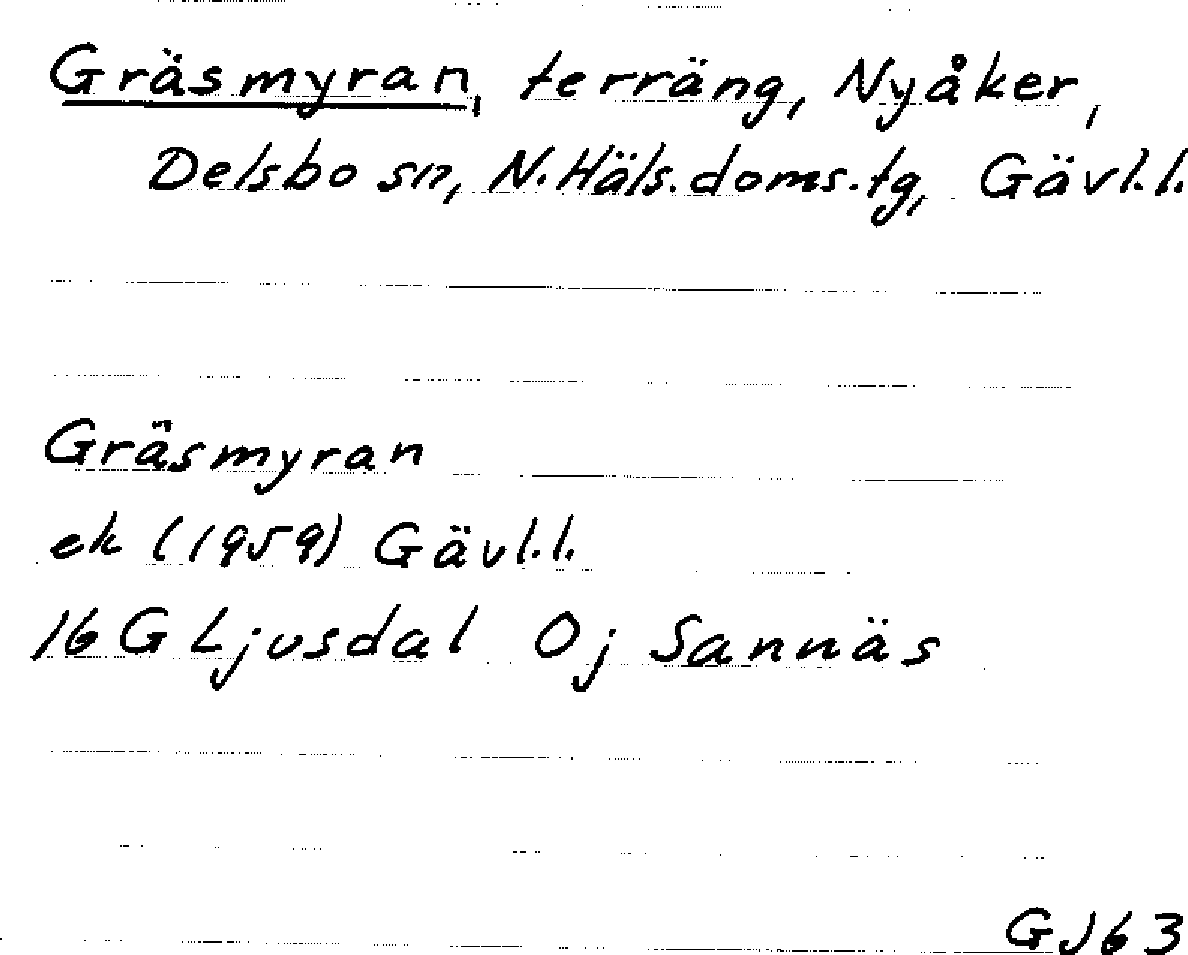 Gräsmyran, terräng, Nyåker,
Delsbo sn, N. Häls. doms. tg, Gävl.l.
Gräsmyran
ek (1959) Gävl.l.
16 G Ljusdal 0j Sannäs
GJ63